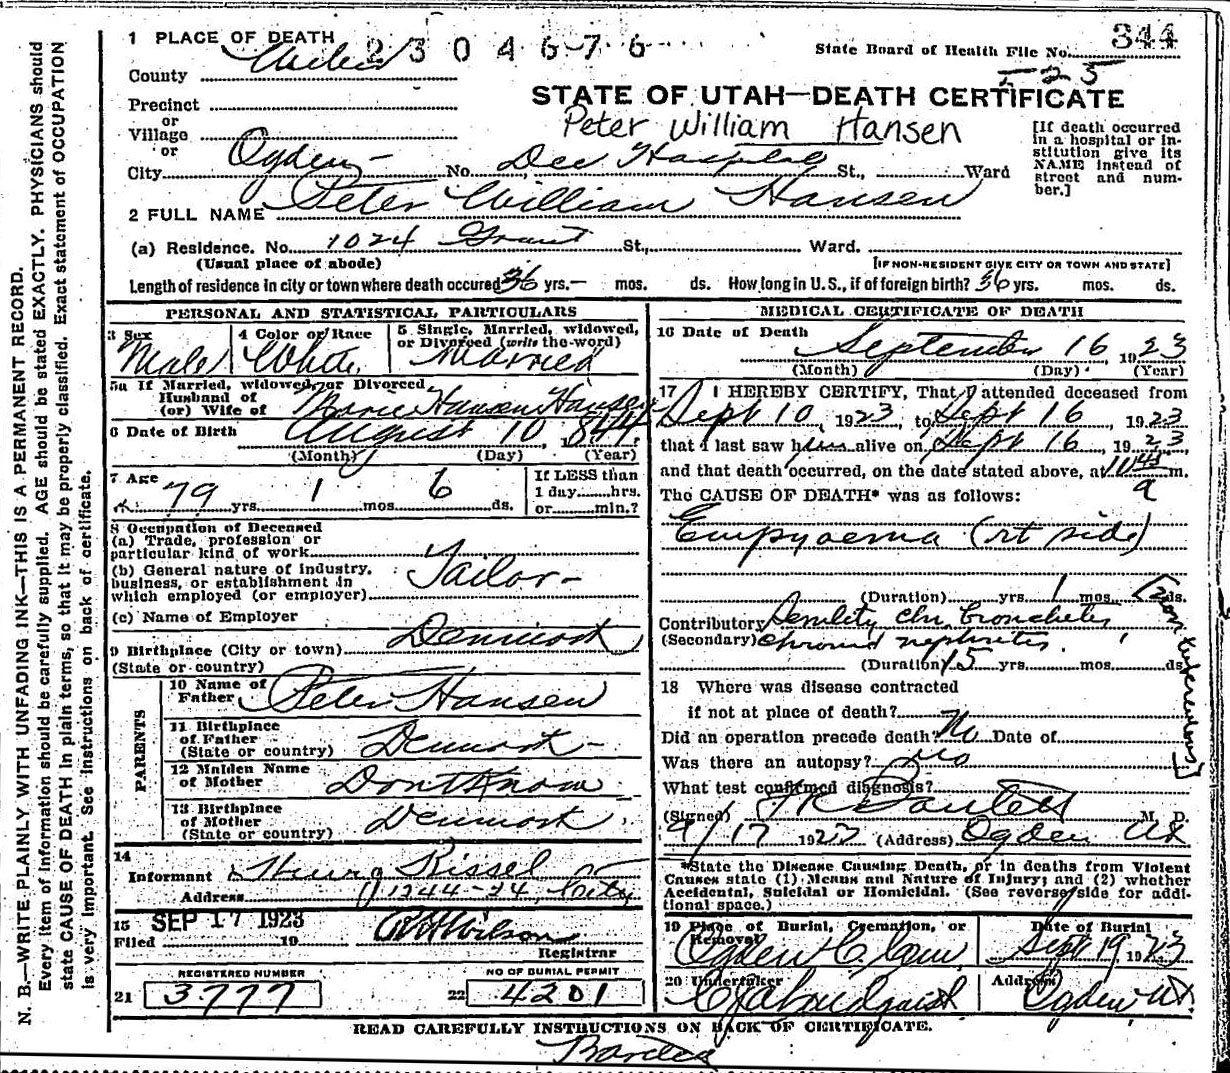 344
1 PLACE OF DEATH
2304676
State Board of Health File No.
525
County Weber
STATE OF UTAH—DEATH CERTIFICATE
Precinct
or
Village
or
Peter William Hansen
[If death occurred in a hospital or institution give its NAME instead of street and number.]
City Ogden No. Dee Hospital St., Ward
2 FULL NAME Peter William Hansen
(a) Residence. No. 1024 Grant St., Ward.
(Usual place of abode) [IF NON-RESIDENT GIVE CITY OR TOWN AND STATE]
Length of residence in city or town where death occured 36 yrs.— mos. ds. How long in U.S., if of foreign birth? 36 yrs. mos. ds.
PERSONAL AND STATISTICAL PARTICULARS
3 Sex
Male
4 Color or Race
White
5 Single, Married, widowed, or Divorced (write the word)
Married
5a If Married, widowed, or Divorced
Husband of
(or) Wife of Marie Hansen Hansen
6 Date of Birth August 10, 1844
(Month) (Day) (Year)
7 Age
79 yrs. 1 mos 6 ds.
If LESS than
1 day......hrs.
or......min.?
8 Occupation of Deceased
(a) Trade, profession or
particular kind of work
(b) General nature of industry,
business, or establishment in
which employed (or employer)
Tailor-
(c) Name of Employer
9 Birthplace (City or town) Denmark
(State or country)
PARENTS
10 Name of
Father Peter Hansen
11 Birthplace
of Father Denmark
(State or country)
12 Maiden Name
of Mother Dont Know
13 Birthplace
of Mother Denmark
(State or country)
14
Informant Kissel
Address 1244-24 City
15 SEP 17 1923
Filed 19
Wilson
Registrar
REGISTERED NUMBER
21 3777
NO OF BURIAL PERMIT
22 4201
MEDICAL CERTIFICATE OF DEATH
16 Date of Death
September 16 1923
(Month) (Day) (Year)
17 I HEREBY CERTIFY, That I attended deceased from
Sept 10, 1923, to Sept 16 1923
that I last saw him alive on Sept 16 1923
and that death occurred, on the date stated above, at 10 45 a m.
The CAUSE OF DEATH* was as follows:
Empyaema (rt side)
(Duration) yrs. 1 mos. ds.
Contributory Senility chr bronchetes
(Secondary) chronic nephrites
(Duration) 15 yrs. mos. ds
[non tuberculous]
18 Where was disease contracted
if not at place of death?
Did an operation precede death? No Date of
Was there an autopsy? No
What test confirmed diagnosis?
(Signed) M. D.
9/17 1923 (Address) Ogden Ut
*State the Disease Causing Death, or in deaths from Violent
Causes state (1) Means and Nature of Injury; and (2) whether
Accidental, Suicidal or Homicidal. (See reverse side for addi-
tional space.)
19 Place of Burial, Cremation, or
Removal
Ogden C. Cem.
Date of Burial
Sept 19 1923
20 Undertaker
Address
Ogden, Ut
READ CAREFULLY INSTRUCTIONS ON BACK OF CERTIFICATE.
N. B.—WRITE PLAINLY WITH UNFADING INK—THIS IS A PERMANENT RECORD.
Every item of information should be carefully supplied. AGE should be stated EXACTLY. PHYSICIANS should
state CAUSE OF DEATH in plain terms, so that it may be properly classified. Exact statement of OCCUPATION
is very important. See instructions on back of certificate.